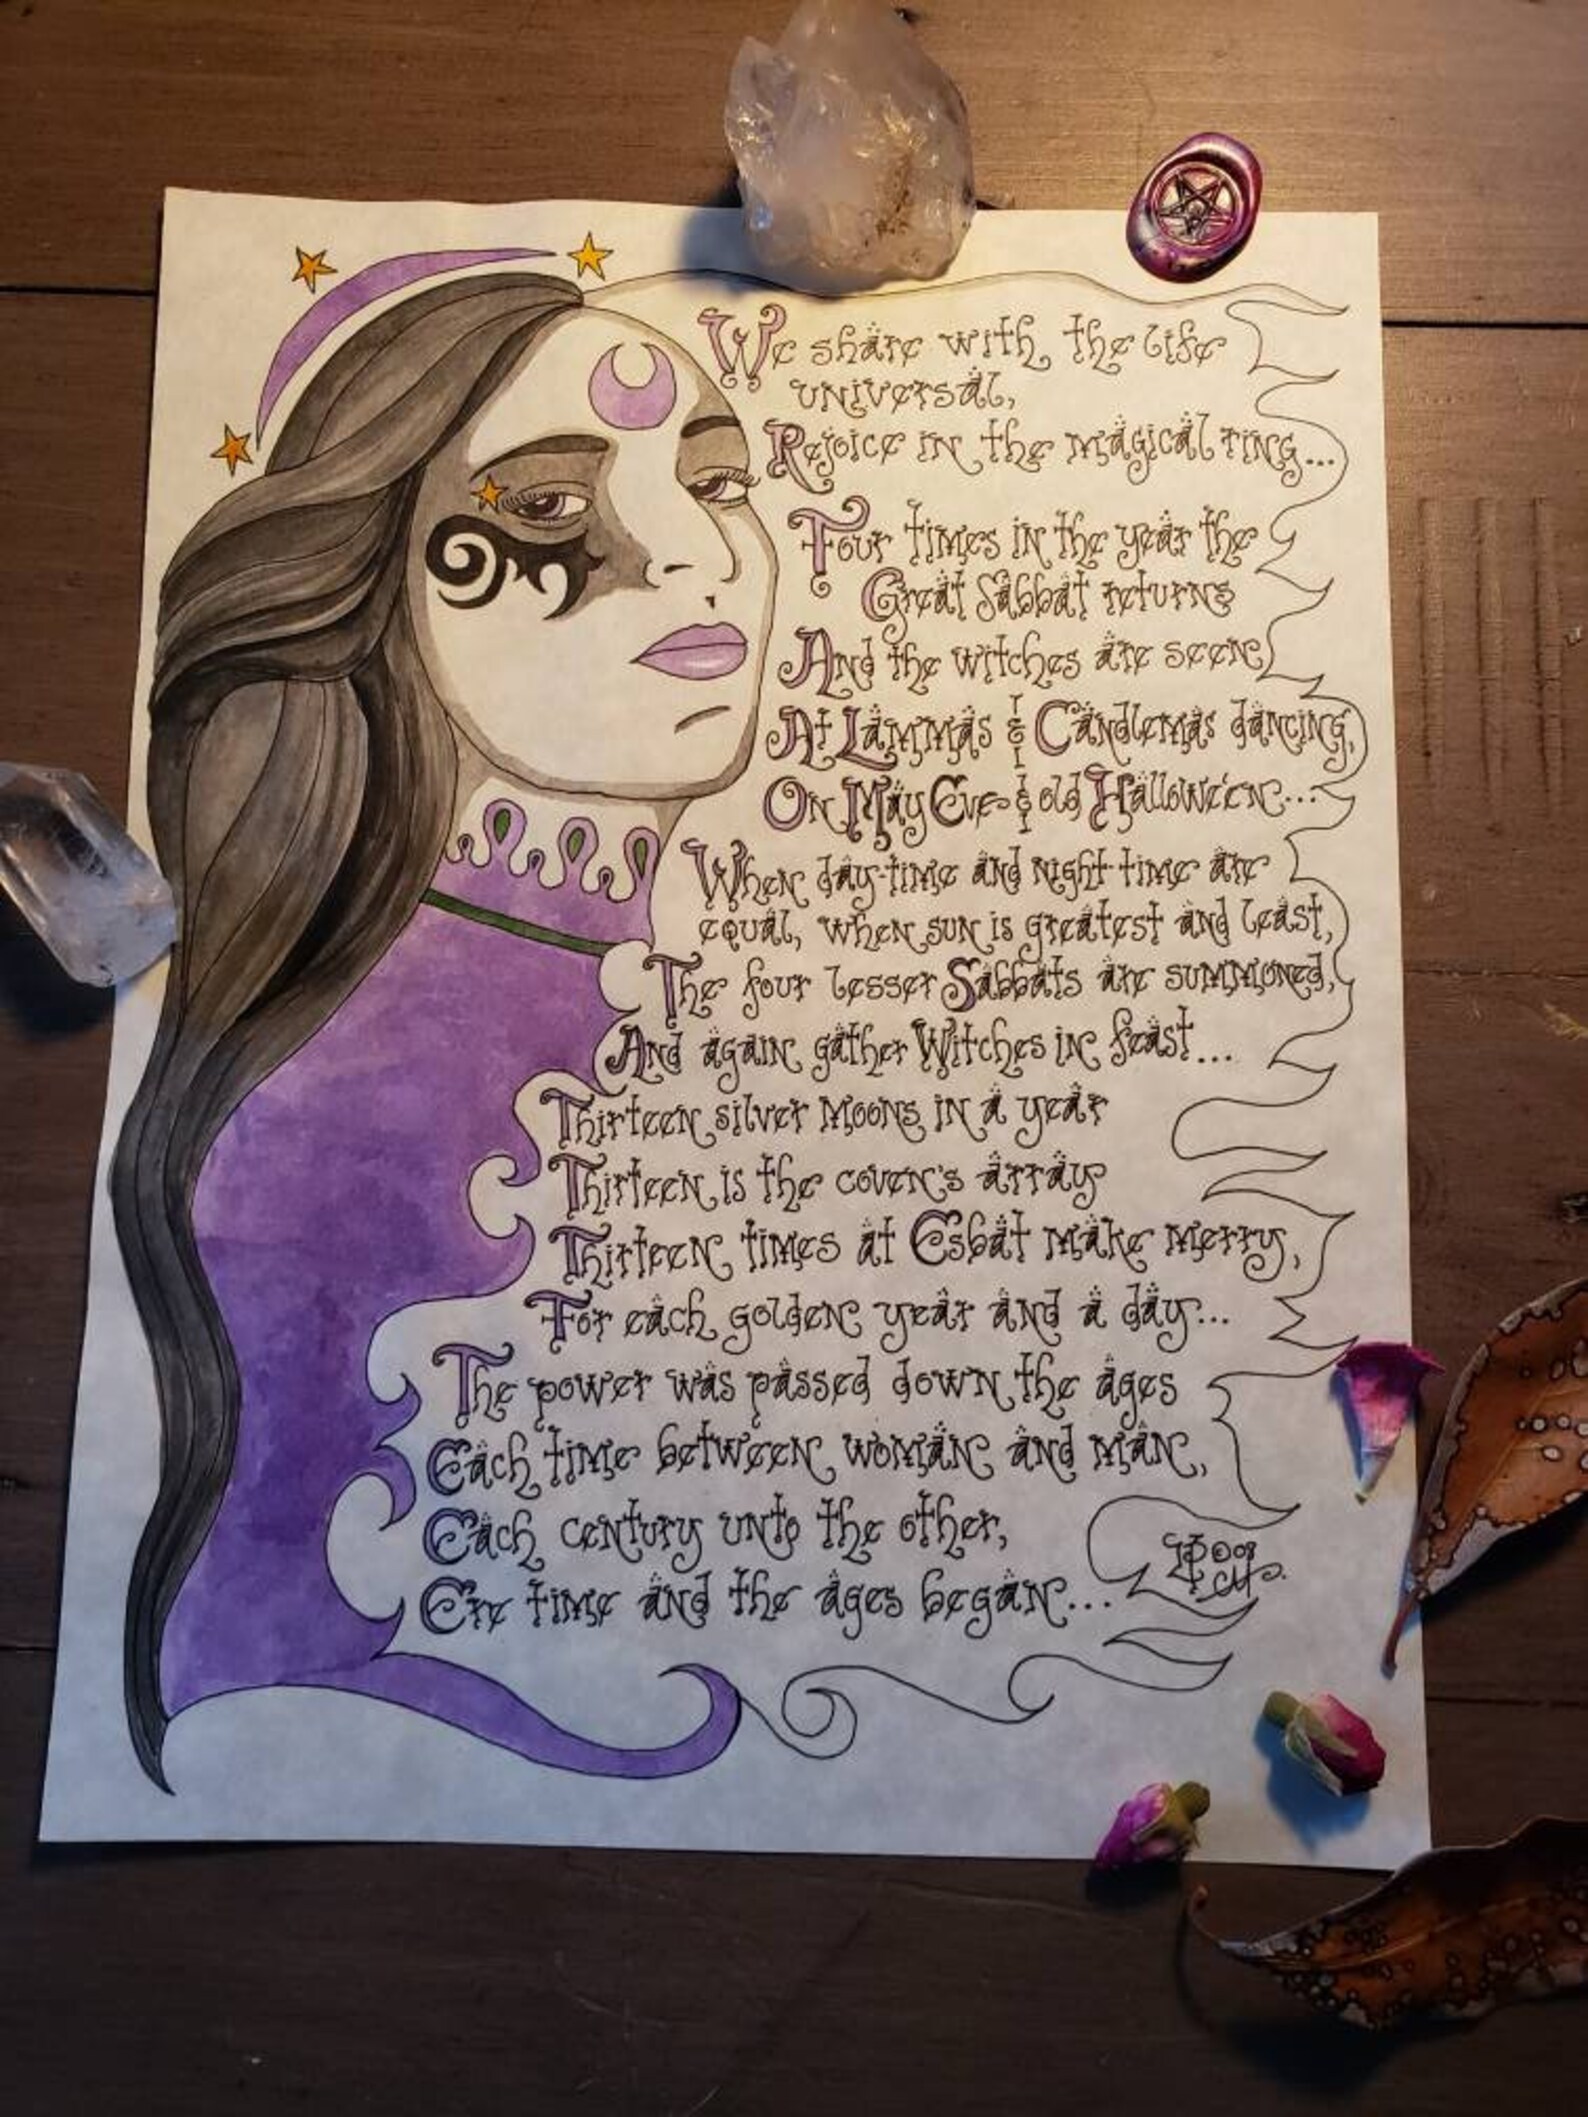 We share with the life
universal,
Rejoice in the magical ring...
Four times in the year the
Great Sabbat returns
And the witches are seen,
At Lammas & Candlemas dancing,
On May Eve & old Hallowe'en...
When day-time and night-time are
equal, when sun is greatest and least,
The four lesser Sabbats are summoned,
And again gather Witches in feast...
Thirteen silver moons in a year
Thirteen is the coven's array
Thirteen times at Esbat make merry,
For each golden year and a day...
The power was passed down the ages
Each time between woman and man,
Each century unto the other,
Ere time and the ages began...